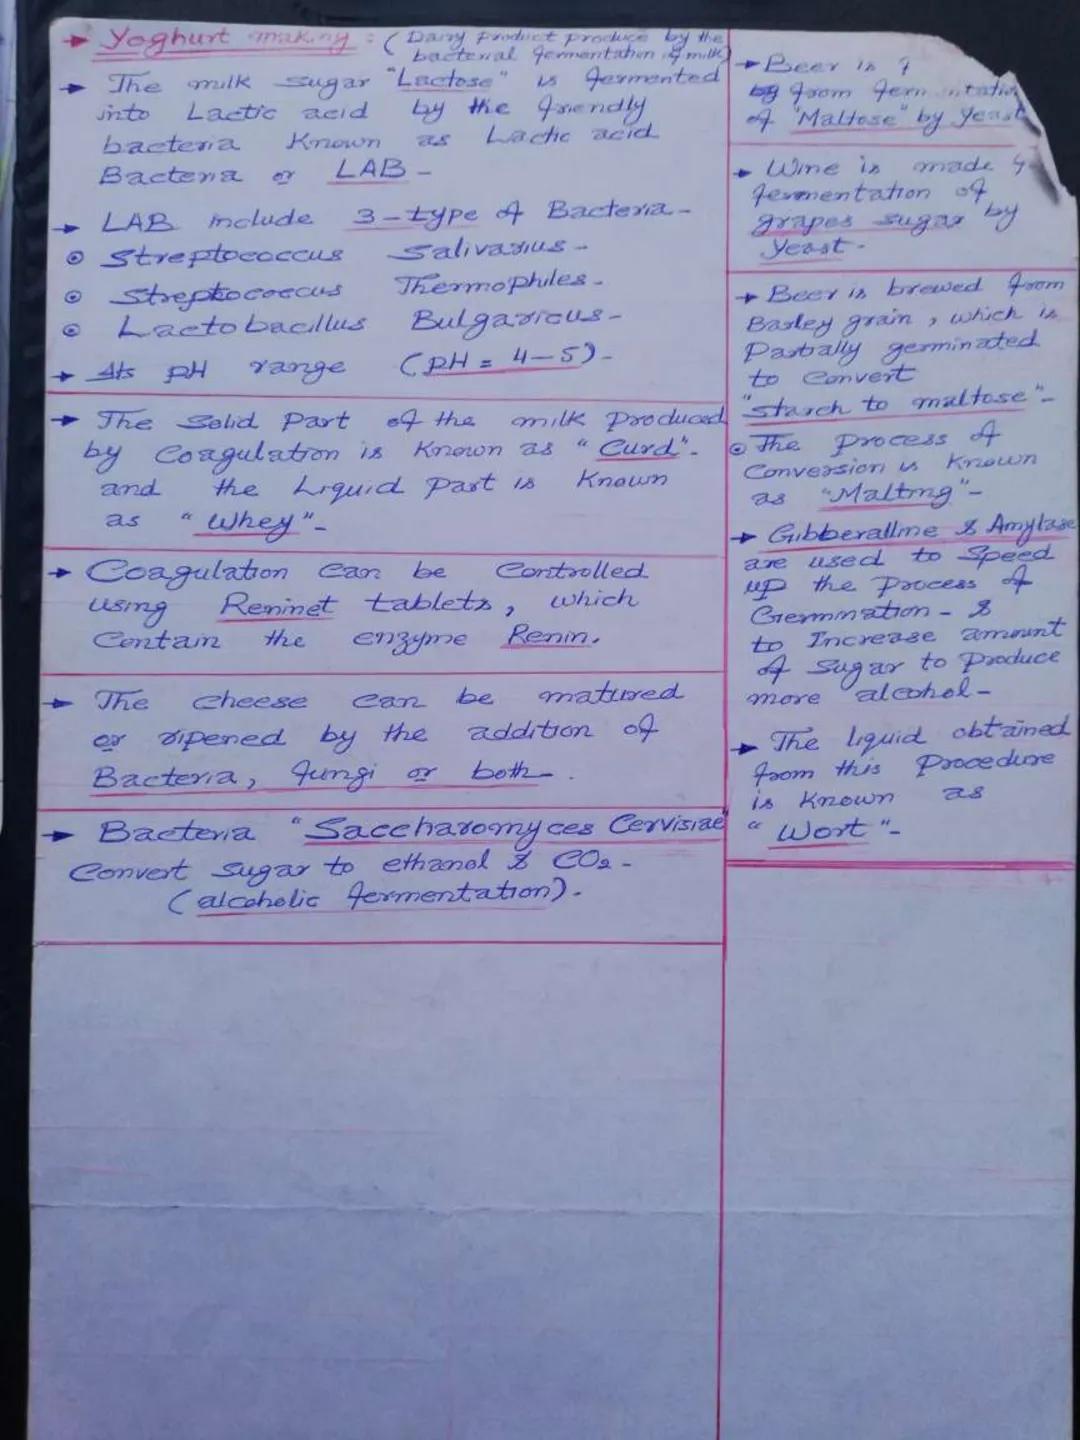 → Yoghurt making : (Dairy product produce by the
bacterial fermentation of milk)
→ The milk sugar "Lactose" is fermented
into Lactic acid by the friendly
bacteria Known as Lactic acid
Bacteria or LAB -
→ LAB include 3-type of Bacteria -
⊙ Streptococcus Salivarius -
⊙ Streptococcus Thermophiles -
⊙ Lactobacillus Bulgaricus -
→ Its pH range (pH = 4-5) -
→ The Solid Part of the milk produced
by Coagulation is Known as "Curd" -
and the Liquid Part is Known
as "Whey" -
→ Coagulation can be Controlled
using Reninet tablets, which
Contain the enzyme Renin.
→ The cheese can be matured
or ripened by the addition of
Bacteria, fungi or both -.
→ Bacteria "Saccharomyces Cervisiae"
Convert sugar to ethanol & CO2 -
(alcoholic fermentation) -
→ Beer is
from
of "Maltose" by yeast
→ Wine is made
fermentation of
grapes sugar by
yeast -
→ Beer is brewed from
Barley grain, which is
Partially germinated
to Convert
"Starch to maltose" -
⊙ The Process of
Conversion is Known
as "Malting" -
→ Gibberalline & Amylase
are used to Speed
up the Process of
Germination - &
to Increase amount
of Sugar to Produce
more alcohol -
→ The liquid obtained
from this Procedure
is Known as
"Wort" -